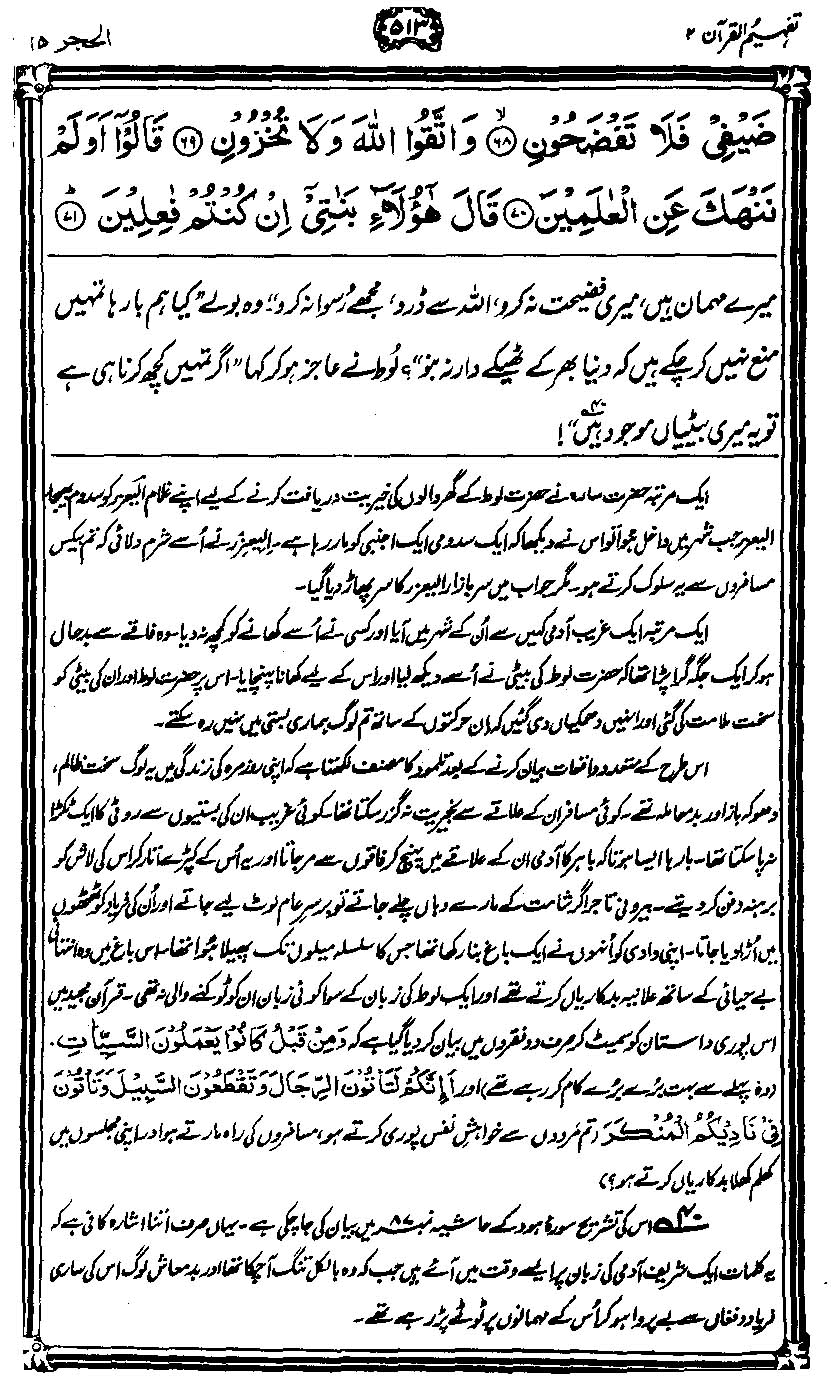 تفہیم القرآن ۲
۵۱۳
الحجر ۱۵
ضَيْفِيْ فَلَا تَفْضَحُوْنِ ۶۸ وَاتَّقُوا اللّٰهَ وَلَا تُخْزُوْنِ ۶۹ قَالُوْٓا اَوَلَمْ
نَنْهَكَ عَنِ الْعٰلَمِيْنَ ۷۰ قَالَ هٰٓؤُلَآءِ بَنٰتِيْٓ اِنْ كُنْتُمْ فٰعِلِيْنَ ۷۱
میرے مہمان ہیں، میری فضیحت نہ کرو، اللہ سے ڈرو، مجھے رُسوا نہ کرو“۔ وہ بولے ”کیا ہم بارہا تمہیں
منع نہیں کر چکے ہیں کہ دنیا بھر کے ٹھیکے دار نہ بنو“؟ لُوط نے عاجز ہو کر کہا ”اگر تمہیں کچھ کرنا ہی ہے
تو یہ میری بیٹیاں موجود ہیں۴۰“!
ایک مرتبہ حضرت سارہ نے حضرت لوط کے گھر والوں کی خیریت دریافت کرنے کے لیے اپنے غلام الیَعزر کو سدوم بھیجا۔
الیعزر جب شہر میں داخل ہوا تو اس نے دیکھا کہ ایک سدومی ایک اجنبی کو مار رہا ہے۔ الیعزر نے اُسے شرم دلائی کہ تم بیکس
مسافروں سے یہ سلوک کرتے ہو۔ مگر جواب میں سرِ بازار الیعزر کا سر پھاڑ دیا گیا۔
ایک مرتبہ ایک غریب آدمی کہیں سے اُن کے شہر میں آیا اور کسی نے اُسے کھانے کو کچھ نہ دیا۔ وہ فاقے سے بدحال
ہو کر ایک جگہ گرا پڑا تھا کہ حضرت لوط کی بیٹی نے اُسے دیکھ لیا اور اس کے لیے کھانا پہنچایا۔ اس پر حضرت لوط اور ان کی بیٹی کو
سخت ملامت کی گئی اور انہیں دھمکیاں دی گئیں کہ ان حرکتوں کے ساتھ تم لوگ ہماری بستی میں نہیں رہ سکتے۔
اس طرح کے متعدد واقعات بیان کرنے کے بعد تلمود کا مصنف لکھتا ہے کہ اپنی روزمرہ کی زندگی میں یہ لوگ سخت ظالم،
دھوکہ باز اور بد معاملہ تھے۔ کوئی مسافر ان کے علاقے سے بخیریت نہ گزر سکتا تھا۔ کوئی غریب ان کی بستیوں سے روٹی کا ایک ٹکڑا
نہ پا سکتا تھا۔ بارہا ایسا ہوتا کہ باہر کا آدمی ان کے علاقے میں پہنچ کر فاقوں سے مر جاتا اور یہ اُس کے کپڑے اُتار کر اس کی لاش کو
برہنہ دفن کر دیتے۔ بیرونی تاجر اگر شامت کے مارے وہاں چلے جاتے تو برسرِ عام لوٹ لیے جاتے اور اُن کی فریاد کو ٹھٹھوں
میں اُڑا دیا جاتا۔ اپنی وادی کو اُنہوں نے ایک باغ بنا رکھا تھا جس کا سلسلہ میلوں تک پھیلا ہُوا تھا۔ اس باغ میں وہ انتہائی
بے حیائی کے ساتھ علانیہ بدکاریاں کرتے تھے اور ایک لوط کی زبان کے سوا کوئی زبان ان کو ٹوکنے والی نہ تھی۔ قرآن مجید میں
اس پوری داستان کو سمیٹ کر صرف دو فقروں میں بیان کر دیا گیا ہے کہ وَمِنْ قَبْلُ كَانُوْا يَعْمَلُوْنَ السَّيِّاٰتِ.
(وہ پہلے سے بہت بڑے بڑے کام کر رہے تھے) اور اَئِنَّكُمْ لَتَاْتُوْنَ الرِّجَالَ وَتَقْطَعُوْنَ السَّبِيْلَ وَتَاْتُوْنَ
فِيْ نَادِيْكُمُ الْمُنْكَرَ (تم مَردوں سے خواہشِ نفس پوری کرتے ہو، مسافروں کی راہ مارتے ہو اور اپنی مجلسوں میں
کھلم کھلا بدکاریاں کرتے ہو؟)
۴۰ اس کی تشریح سورۂ ہود کے حاشیہ نمبر ۸۷ میں بیان کی جا چکی ہے۔ یہاں صرف اتنا اشارہ کافی ہے کہ
یہ کلمات ایک شریف آدمی کی زبان پر ایسے وقت میں آئے ہیں جب کہ وہ بالکل تنگ آ چکا تھا اور بدمعاش لوگ اس کی ساری
فریاد و فغاں سے بے پروا ہو کر اُس کے مہمانوں پر ٹوٹے پڑ رہے تھے۔